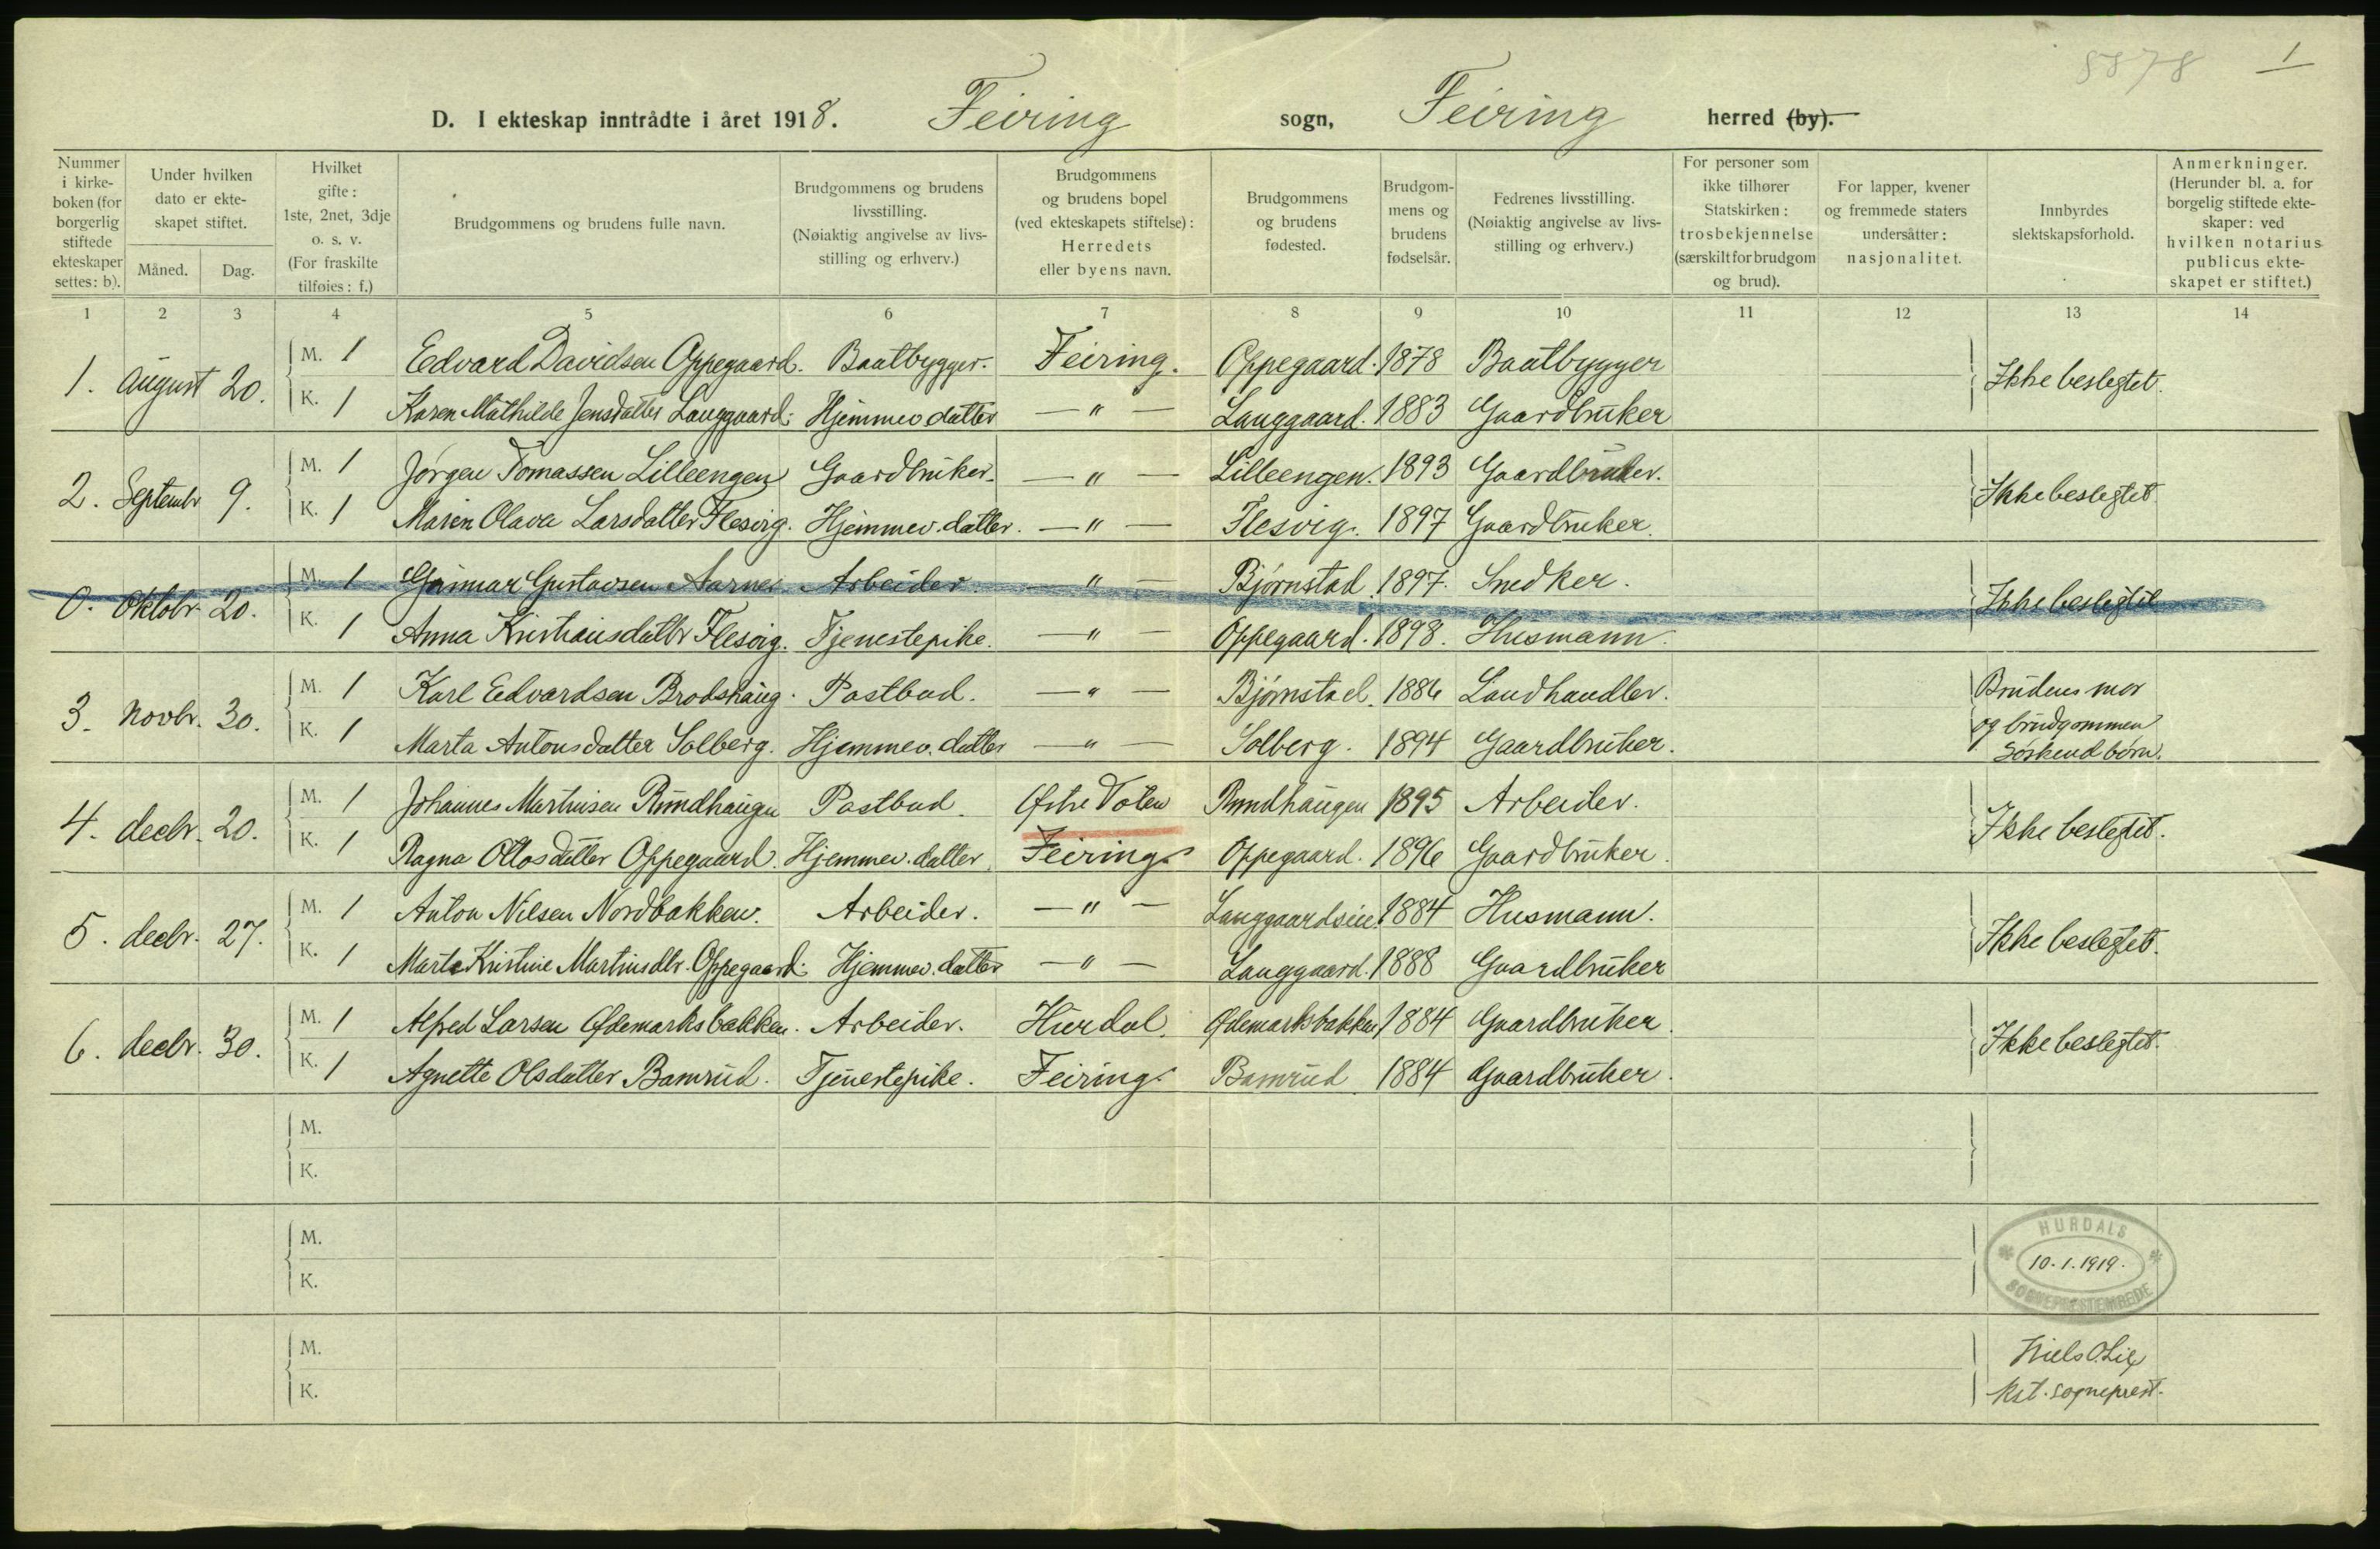 5878 1
D. I ekteskap inntrådte i året 1918. Feiring sogn, Feiring herred (by).
Nummer i kirkeboken (for borgerlig stiftede ekteskaper settes: b).
Under hvilken dato er ekteskapet stiftet.
Måned. Dag.
Hvilket gifte: 1ste, 2net, 3dje o. s. v. (For fraskilte tilføies: f.)
Brudgommens og brudens fulle navn.
Brudgommens og brudens livsstilling. (Nøiaktig angivelse av livsstilling og erhverv.)
Brudgommens og brudens bopel (ved ekteskapets stiftelse): Herredets eller byens navn.
Brudgommens og brudens fødested.
Brudgommens og brudens fødselsår.
Fedrenes livsstilling. (Nøiaktig angivelse av livsstilling og erhverv.)
For personer som ikke tilhører Statskirken: trosbekjennelse (særskilt for brudgom og brud).
For lapper, kvener og fremmede staters undersåtter: nasjonalitet.
Innbyrdes slektskapsforhold.
Anmerkninger. (Herunder bl. a. for borgelig stiftede ekteskaper: ved hvilken notarius publicus ekteskapet er stiftet.)
1 2 3 4 5 6 7 8 9 10 11 12 13 14
M. 1 Edvard Davidsen Oppegaard. Baatbygger. Feiring. Oppegaard. 1878 Baatbygger
1. August 20. Ikke beslegtet.
K. 1 Karen Mathilde Jensdatter Langgaard. Hjemmev. datter — " — Langgaard. 1883 Gaardbruker
M. 1 Jørgen Tomassen Lilleengen Gaardbruker. — " — Lilleengen. 1893 Gaardbruker.
2. Septembr 9. Ikke beslegtet
K. 1 Maren Olava Larsdatter Flesvig. Hjemmev. datter. — " — Flesvig. 1897 Gaardbruker.
M. 1 Gunnar Gustavsen Aarnes Arbeider. — " — Bjørnstad 1897. Snedker.
0. Oktobr. 20. Ikke beslegtet
K. 1 Anna Kristiansdattr Flesvig. Tjenestepike. — " — Oppegaard. 1898. Husmann.
M. 1 Karl Edvardsen Brodshaug. Postbud. — " — Bjørnstad. 1886 Landhandler. Brudens mor
3. Novbr. 30. og brudgommen
K. 1 Marta Antonsdatter Solberg. Hjemmev. datter — " — Solberg. 1894 Gaardbruker. Søskendbørn.
M. 1 Johannes Martinisen Rundhaugen Postbud. Østre Toten Rundhaugen 1895 Arbeider.
4. decbr. 20. Ikke beslegtet.
K. 1 Ragna Ottosdatter Oppegaard. Hjemmev. datter. Feiring. Oppegaard. 1896 Gaardbruker.
M. 1 Anton Nilsen Nordbakken. Arbeider. — " — Langgaardseie. 1884 Husmann.
5. decbr. 27. Ikke beslegtet.
K. 1 Marte Kristine Martinsdtr. Oppegaard. Hjemmev. datter — " — Langgaard. 1888 Gaardbruker
M. 1 Alfred Larsen Ødemarksbakken. Arbeider. Hurdal. Ødemarksbakken 1884 Gaardbruker.
6. decbr. 30. Ikke beslegtet.
K. 1 Agnette Olsdatter Bamrud. Tjenestepike. Feiring. Bamrud 1884 Gaardbruker.
M.
K.
M.
K.
HURDALS
10. 1. 1919.
SOGNEPRESTEMBEDE
M.
K.
Niels O. Lie
kst. sogneprest.